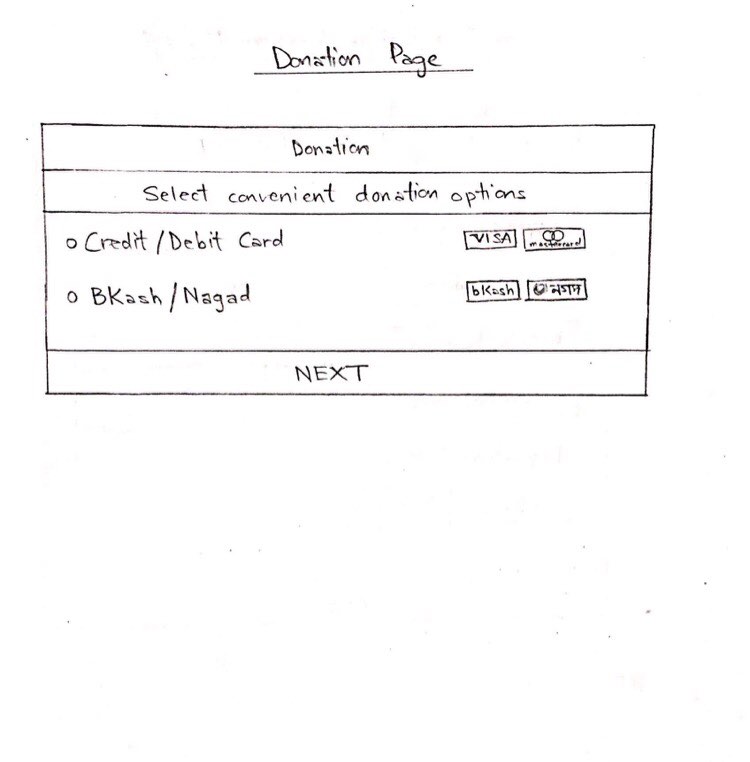 Donation Page
Donation
Select convenient donation options
Credit/Debit Card VISA mastercard
BKash/Nagad bKash নগদ
NEXT